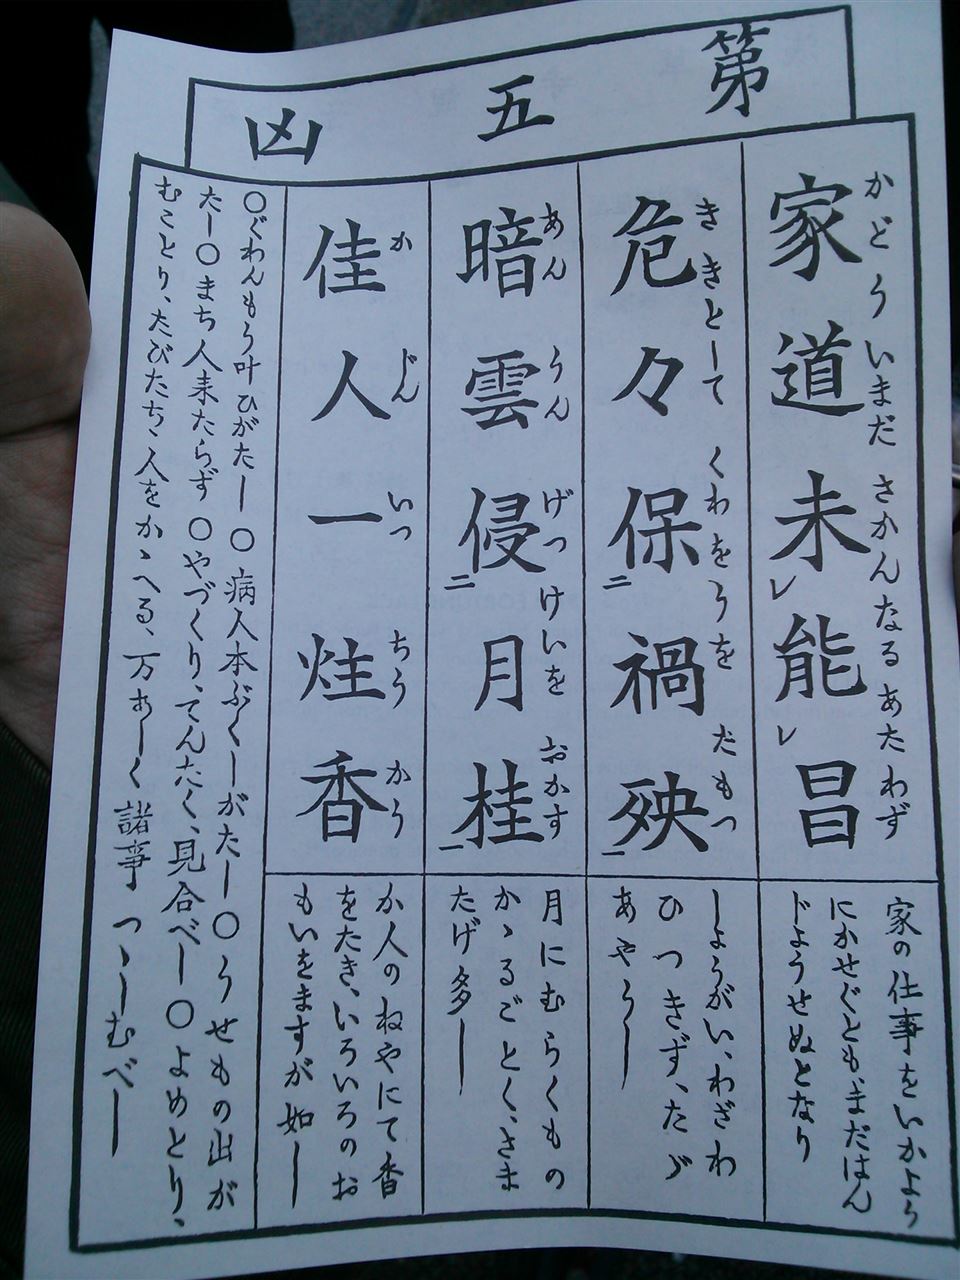 第五凶
家道未能昌
かどう いまだ さかんなる あたわず
レ レ
危々保禍殃
ききとして くわをうを だもつ
二 一
暗雲侵月桂
あんうん げつけいを おかす
二 一
佳人一炷香
かじん いつ ちう かう
家の仕事をいかよう
にかせぐとも、まだはん
ドようせぬとなり
しようがい、わざわ
ひつきず、たゞ
あやうし
月にむらくもの
かゝるごとく、さま
たげ多し
か人のねやにて香
をたき、いろいろのお
もいをますが如し
○ぐわんもう叶ひがたし ○病人本ぶくしがたし○うせもの出が
たし○まち人来たらず ○やづくり、てんたく、見合べし○よめとり、
むことり、たびたち、人をかゝへる、万あしく諸事つゝしむべし